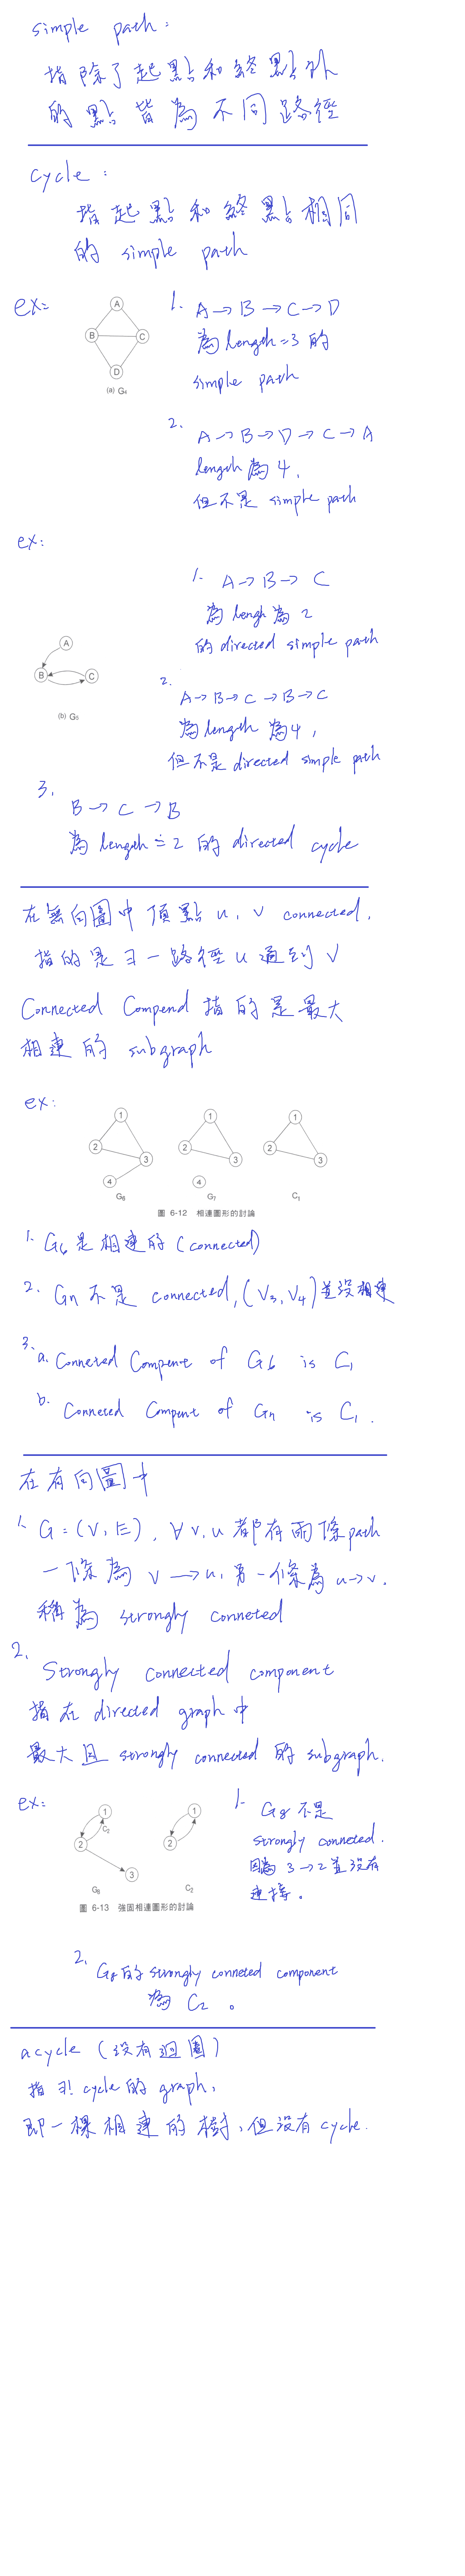 simple path:
指除了起點和終點外
的點皆為不同路徑
cycle:
指起點和終點相同
的 simple path
ex:
A
B
C
D
(a) G₄
1. A → B → C → D
為 length = 3 的
simple path
2.
A → B → D → C → A
length 為 4,
但不是 simple path
ex:
1. A → B → C
為 lengh 為 2
的 directed simple path
A
B
C
(b) G₅
2.
A → B → C → B → C
為 length 為 4,
但不是 directed simple path
3.
B → C → B
為 length = 2 的 directed cycle
在無向圖中頂點 u, v connected,
指的是 ∃ 一路徑 u 通到 v
Connected Compend 指的是最大
相連的 subgraph
ex:
1
2
3
4
G₆
1
2
3
4
G₇
1
2
3
C₁
圖 6-12 相連圖形的討論
1. G₆ 是相連的 (connected)
2. G₇ 不是 connected, (V₃, V₄) 並沒相連
3.
a. Conneted Compent of G₆ is C₁
b. Conneted Compent of G₇ is C₁.
在有向圖中
1. G = (V, E), ∀ v, u 都有兩條 path
一條為 v → u, 另一條為 u → v.
稱為 strongly conneted
2.
Strongly connected component
指在 directed graph 中
最大且 strongly connected 的 subgraph.
ex:
1
C₂
2
3
G₈
1
2
C₂
圖 6-13 強固相連圖形的討論
1. G₈ 不是
strongly conneted.
因為 3 → 2 並沒有
連接。
2.
G₈ 的 strongly conneted component
為 C₂。
acycle (沒有迴圈)
指 ∄! cycle 的 graph,
即一棵相連的樹,但沒有 cycle.